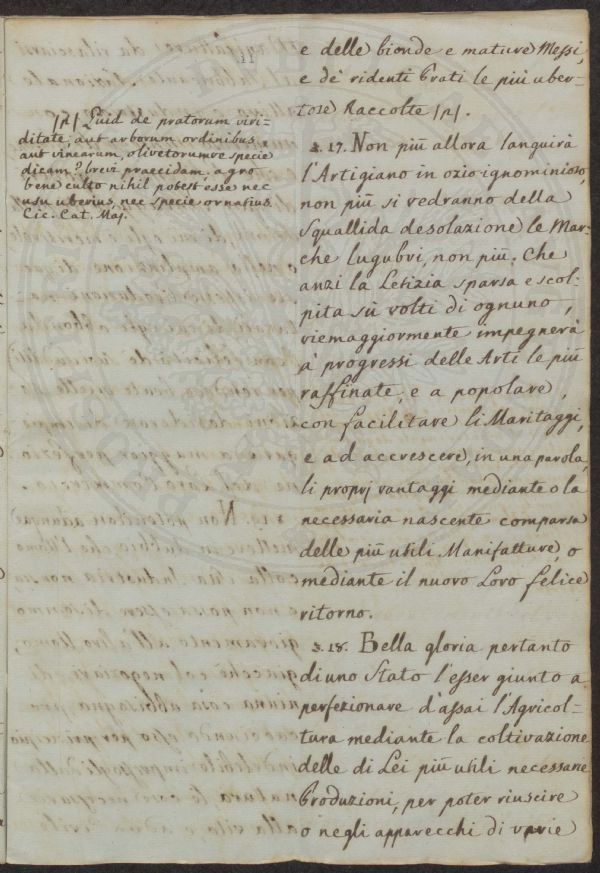 11
e delle bionde e mature Messi,
e de' ridenti Prati le più uber-
tose Raccolte (p).
(p) Quid de pratorum viri-
ditate, aut arborum ordinibus,
aut vinearum, olivetorumve specie
dicam? brevi praecidam, agro
bene culto nihil potest esse nec
usu uberius, nec specie ornatius.
Cic. Cat. Maj.
§. 17. Non più allora languirà
l'Artigiano in ozio ignominioso,
non più si vedranno della
Squallida desolazione le Mar-
che lugubri, non più. Che
anzi la Letizia sparsa e scol-
pita sù volti di ognuno,
viemaggiormente impegnerà
à progressi delle Arti le più
raffinate, e a popolare,
con facilitare li Maritaggi,
e ad accrescere, in una parola,
li proprj vantaggi mediante o la
necessaria nascente comparsa
delle più utili Manifatture, o
mediante il nuovo Loro felice
ritorno.
§. 18. Bella gloria pertanto
di uno Stato l'esser giunto a
perfezionare d'assai l'Agricol-
tura mediante la coltivazione
delle di Lei più utili necessarie
Produzioni, per poter riuscire
o negli apparecchi di varie